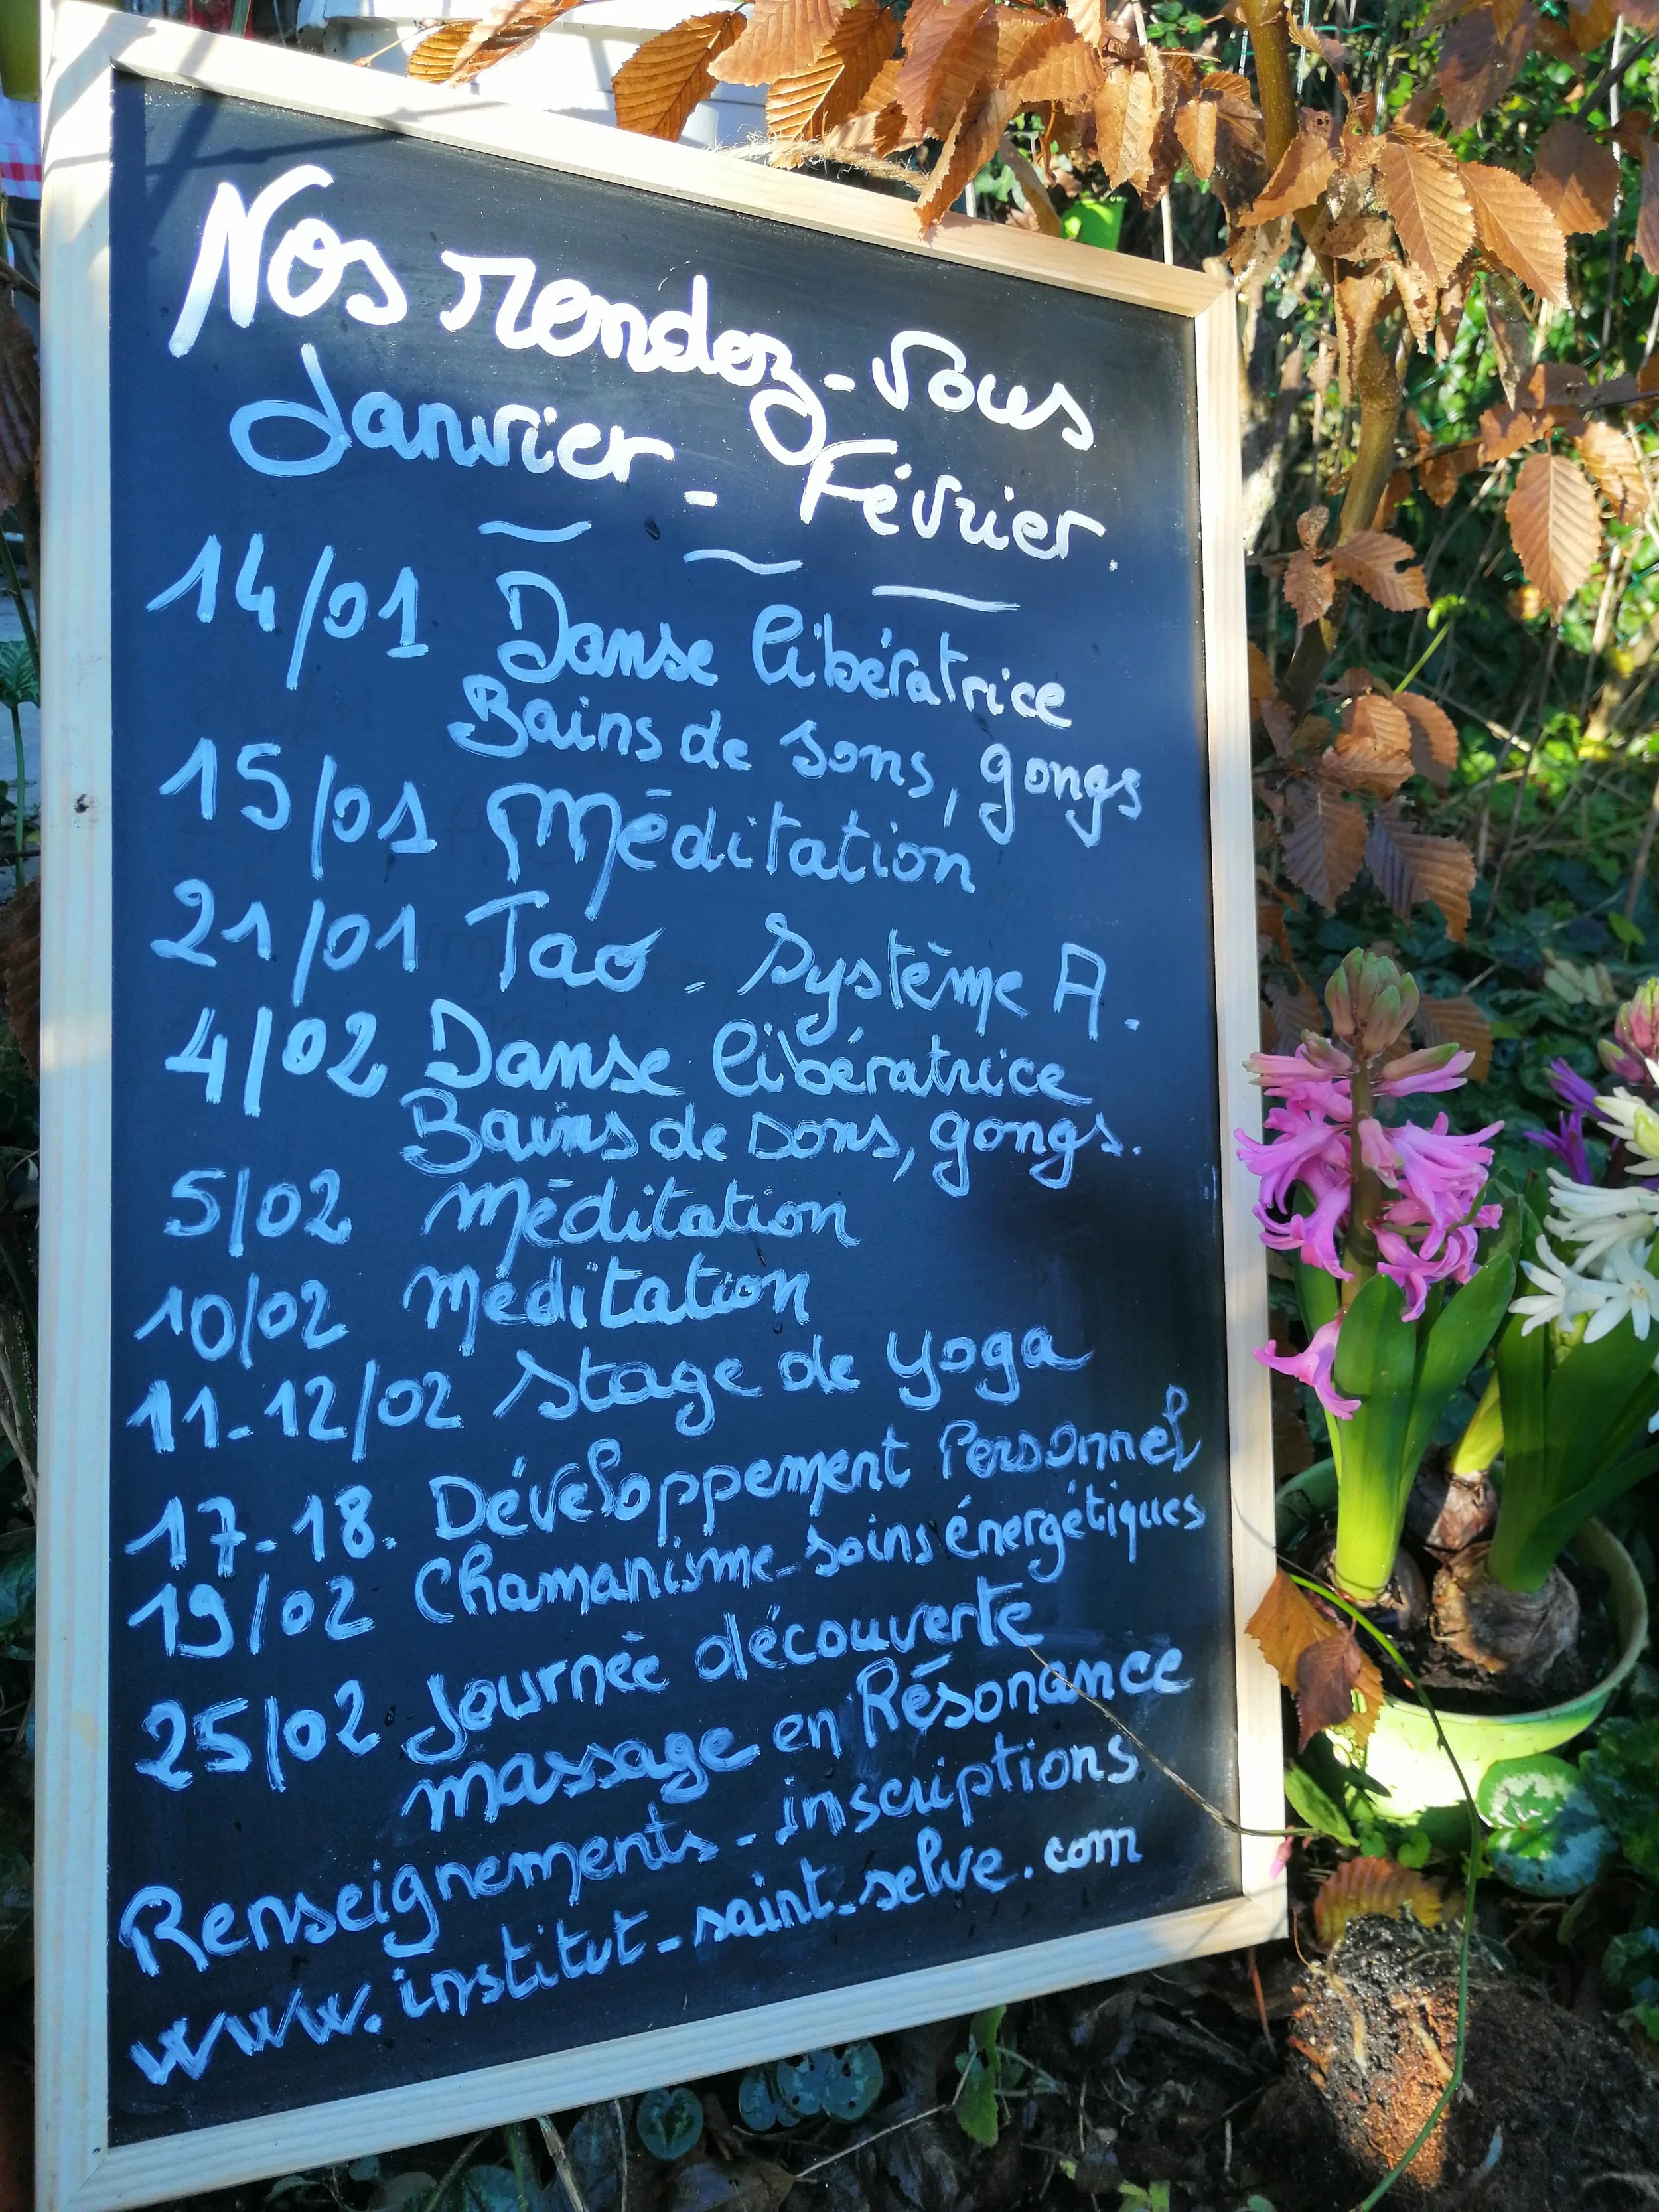 Nos rendez-vous
Janvier - Février.
14/01 Danse libératrice
Bains de sons, gongs
15/01 Méditation
21/01 Tao - Système A.
4/02 Danse libératrice
Bains de sons, gongs.
5/02 Méditation
10/02 Méditation
11-12/02 Stage de yoga
17-18. Développement Personnel
19/02 Chamanisme-soins énergétiques
25/02 Journée découverte
massage en Résonance
Renseignements - inscriptions
www.institut-saint-selve.com